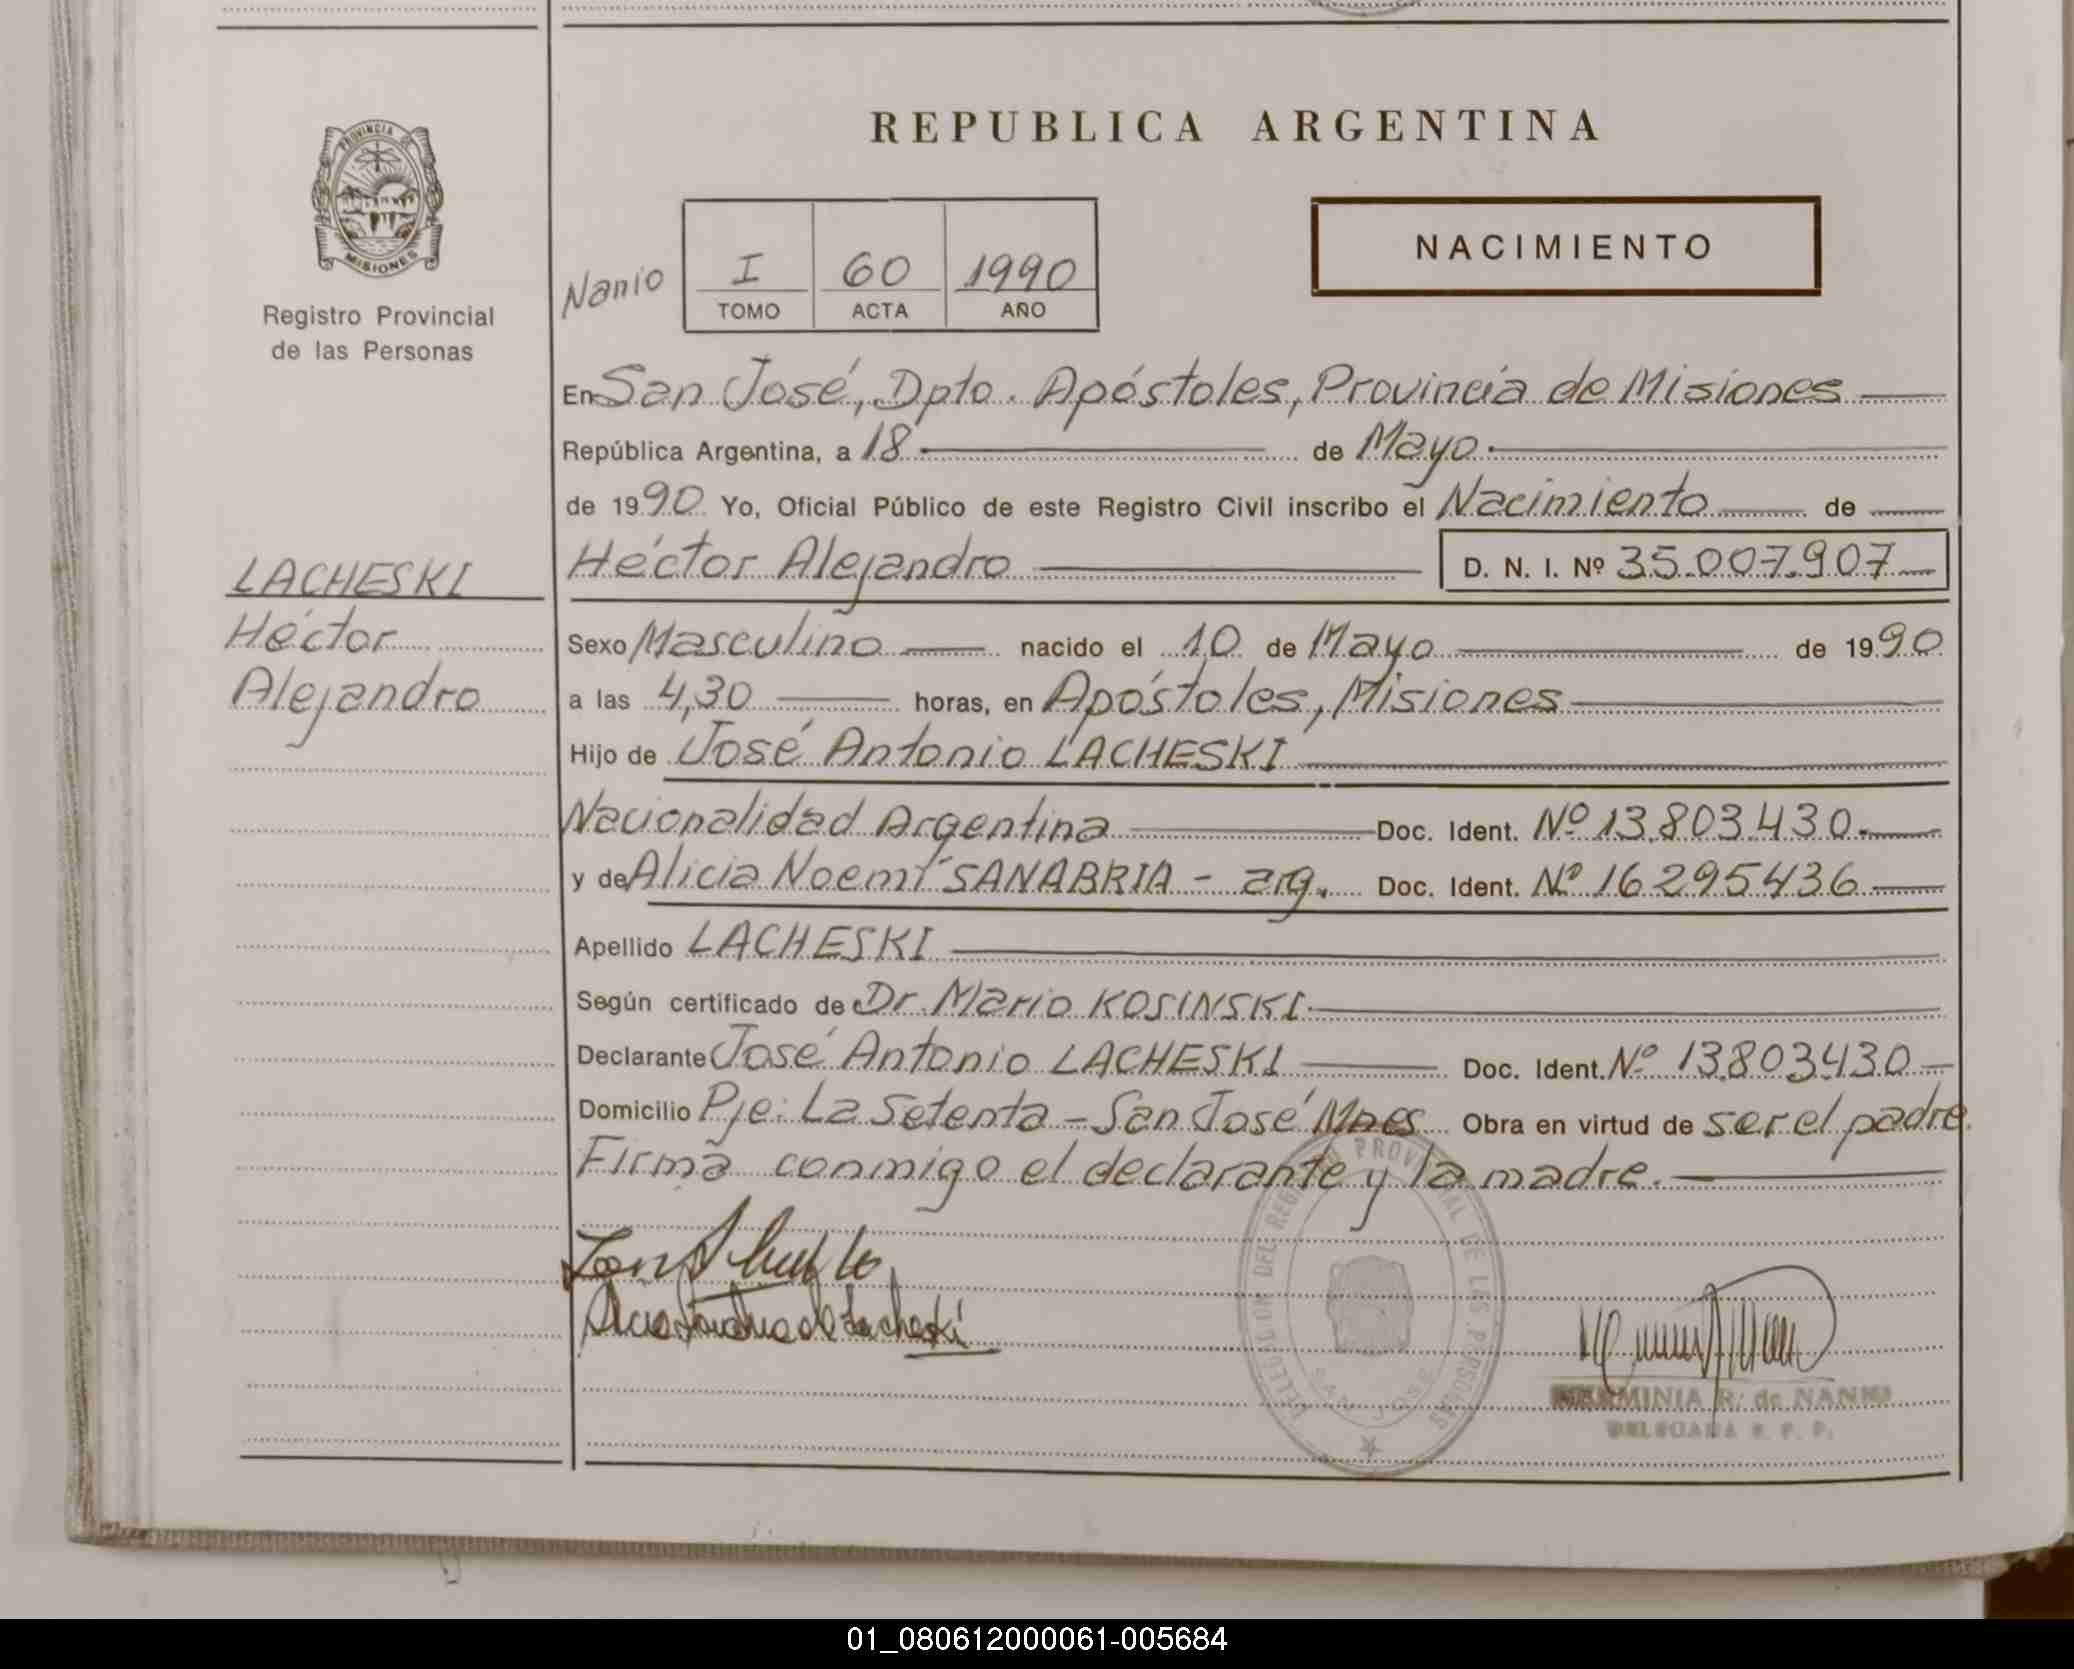 REPUBLICA ARGENTINA
PROVINCIA DE
MISIONES
Registro Provincial
de las Personas
NACIMIENTO
Nanio
I 60 1990
TOMO ACTA AÑO
En San José, Dpto. Apóstoles, Provincia de Misiones
República Argentina, a 18 de Mayo
de 1990 Yo, Oficial Público de este Registro Civil inscribo el Nacimiento de
Héctor Alejandro D. N. I. Nº 35.007.907
LACHESKI
Héctor
Alejandro
Sexo Masculino nacido el 10 de Mayo de 1990
a las 4,30 horas, en Apóstoles, Misiones
Hijo de José Antonio LACHESKI
Nacionalidad Argentina Doc. Ident. Nº 13.803.430.
y de Alicia Noemí SANABRIA - arg. Doc. Ident. Nº 16.295.436
Apellido LACHESKI
Según certificado de Dr. Mario KOSINSKI
Declarante José Antonio LACHESKI Doc. Ident. Nº 13.803.430
Domicilio Pje: La Setenta - San José Mnes Obra en virtud de ser el padre.
Firma conmigo el declarante y la madre.
DELEGACION DEL REGISTRO PROVINCIAL DE LAS PERSONAS
SAN JOSE
de Lacheski
HERMINIA R. de NANIO
DELEGADA R. P. P.
01_080612000061-005684